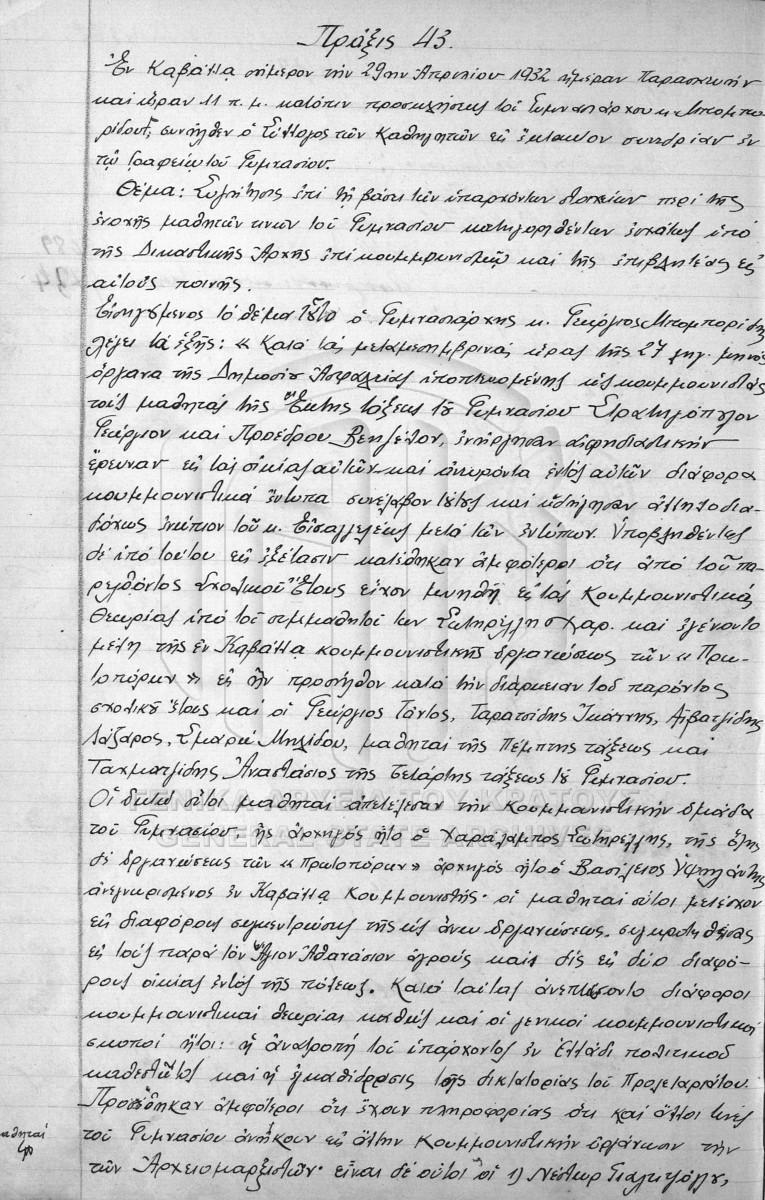 Πράξις 43.
Ἐν Καβάλλᾳ σήμερον τὴν 29ην Ἀπριλίου 1932 ἡμέραν Παρασκευὴν
καὶ ὥραν 11 π. μ. κατόπιν προσκλήσεως τοῦ Γυμνασιάρχου κ. Μπομπο-
ρίδου, συνῆλθεν ὁ Σύλλογος τῶν Καθηγητῶν εἰς ἔκτακτον συνεδρίαν ἐν
τῷ Γραφείῳ τοῦ Γυμνασίου.
Θέμα: Συζήτησις ἐπὶ τῇ βάσει τῶν ὑπαρχόντων στοιχείων περὶ τῆς
ἐνοχῆς μαθητῶν τινων τοῦ Γυμνασίου κατηγορηθέντων ἐσχάτως ὑπὸ
τῆς Δικαστικῆς Ἀρχῆς ἐπὶ κουμμουνισμῷ καὶ τῆς ἐπιβλητέας εἰς
αὐτοὺς ποινῆς.
Εἰσηγούμενος τὸ θέμα τοῦτο ὁ Γυμνασιάρχης κ. Γεώργιος Μπομπορίδης
λέγει τὰ ἑξῆς: « Κατὰ τὰς μεταμεσημβρινὰς ὥρας τῆς 27 μηνὸς
ὄργανα τῆς Δημοσίας Ἀσφαλείας ὑποπτευομένης ὡς κουμμουνιστὰς
τοὺς μαθητὰς τῆς Ἕκτης τάξεως τοῦ Γυμνασίου Στρατηγόπουλον
Γεώργιον καὶ Προέδρου Βενιζέλον, ἐνήργησαν αἰφνιδιαστικὴν
ἔρευναν εἰς τὰς οἰκίας αὐτῶν καὶ ἀνευρόντα ἐντὸς αὐτῶν διάφορα
κουμμουνιστικὰ ἔντυπα συνέλαβον τούτους καὶ ὡδήγησαν ἀλληλοδια-
δόχως ἐνώπιον τοῦ κ. Εἰσαγγελέως μετὰ τῶν ἐντύπων. Ὑποβληθέντες
δὲ ὑπὸ τούτου εἰς ἐξέτασιν κατέθηκαν ἀμφότεροι ὅτι ἀπὸ τοῦ πα-
ρελθόντος σχολικοῦ ἔτους εἶχον μυηθῆ εἰς τὰς Κουμμουνιστικὰς
Θεωρίας ὑπὸ τοῦ συμμαθητοῦ των Σωτηρέλλη Χαρ. καὶ ἐγένοντο
μέλη τῆς ἐν Καβάλλᾳ κουμμουνιστικῆς ὀργανώσεως τῶν « Πρω-
τοπόρων » εἰς ἣν προσῆλθον κατὰ τὴν διάρκειαν τοῦ παρόντος
σχολικοῦ ἔτους καὶ οἱ Γεώργιος Τάντος, Ταρατσίδης Ἰωάννης, Ἀϊβατζίδης
Λάζαρος, Σμαρὼ Μηλίδου, μαθηταὶ τῆς Πέμπτης τάξεως καὶ
Ταχματζίδης Ἀναστάσιος τῆς τετάρτης τάξεως τοῦ Γυμνασίου.
Οἱ ὀκτὼ οὗτοι μαθηταὶ ἀπετέλεσαν τὴν κουμμουνιστικὴν ὁμάδα
τοῦ Γυμνασίου, ἧς ἀρχηγὸς ἦτο ὁ Χαράλαμπος Σωτηρέλλης, τῆς ὅλης
δὲ ὀργανώσεως τῶν « Πρωτοπόρων » ἀρχηγὸς ἦτο ὁ Βασίλειος Ὑψηλάντης
ἀνεγνωρισμένος ἐν Καβάλλᾳ Κουμμουνιστής· οἱ μαθηταὶ οὗτοι μετέσχον
εἰς διαφόρους συγκεντρώσεις τῆς ὡς ἄνω ὀργανώσεως, συγκροτηθείσας
εἰς τοὺς παρὰ τὸν Ἅγιον Ἀθανάσιον ἀγροὺς καὶ δὶς εἰς δύο διαφό-
ρους οἰκίας ἐντὸς τῆς πόλεως. Κατὰ ταύτας ἀνεπτύσσοντο διάφοροι
κουμμουνιστικαὶ θεωρίαι καθὼς καὶ οἱ γενικοὶ κουμμουνιστικοὶ
σκοποὶ ἤτοι: ἡ ἀνατροπὴ τοῦ ὑπάρχοντος ἐν Ἑλλάδι πολιτικοῦ
καθεστῶτος καὶ ἡ ἐγκαθίδρυσις τῆς δικτατορίας τοῦ Προλεταριάτου.
Προσέθηκαν ἀμφότεροι ὅτι ἔχουν πληροφορίας ὅτι καὶ ἄλλοι τινὲς
μαθηταὶ
τοῦ Γυμνασίου ἀνήκουν εἰς ἄλλην Κουμμουνιστικὴν ὀργάνωσιν τὴν
τῶν Ἀρχειομαρξιστῶν· εἶναι δὲ οὗτοι οἱ 1) Νέστωρ
ΓΕΝΙΚΑ ΑΡΧΕΙΑ ΤΟΥ ΚΡΑΤΟΥΣ
GENERAL STATE ARCHIVES